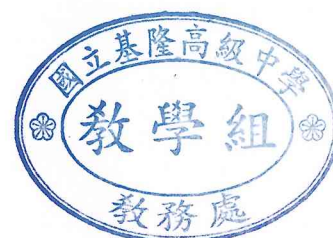 國立基隆高級中學
教學組
教務處